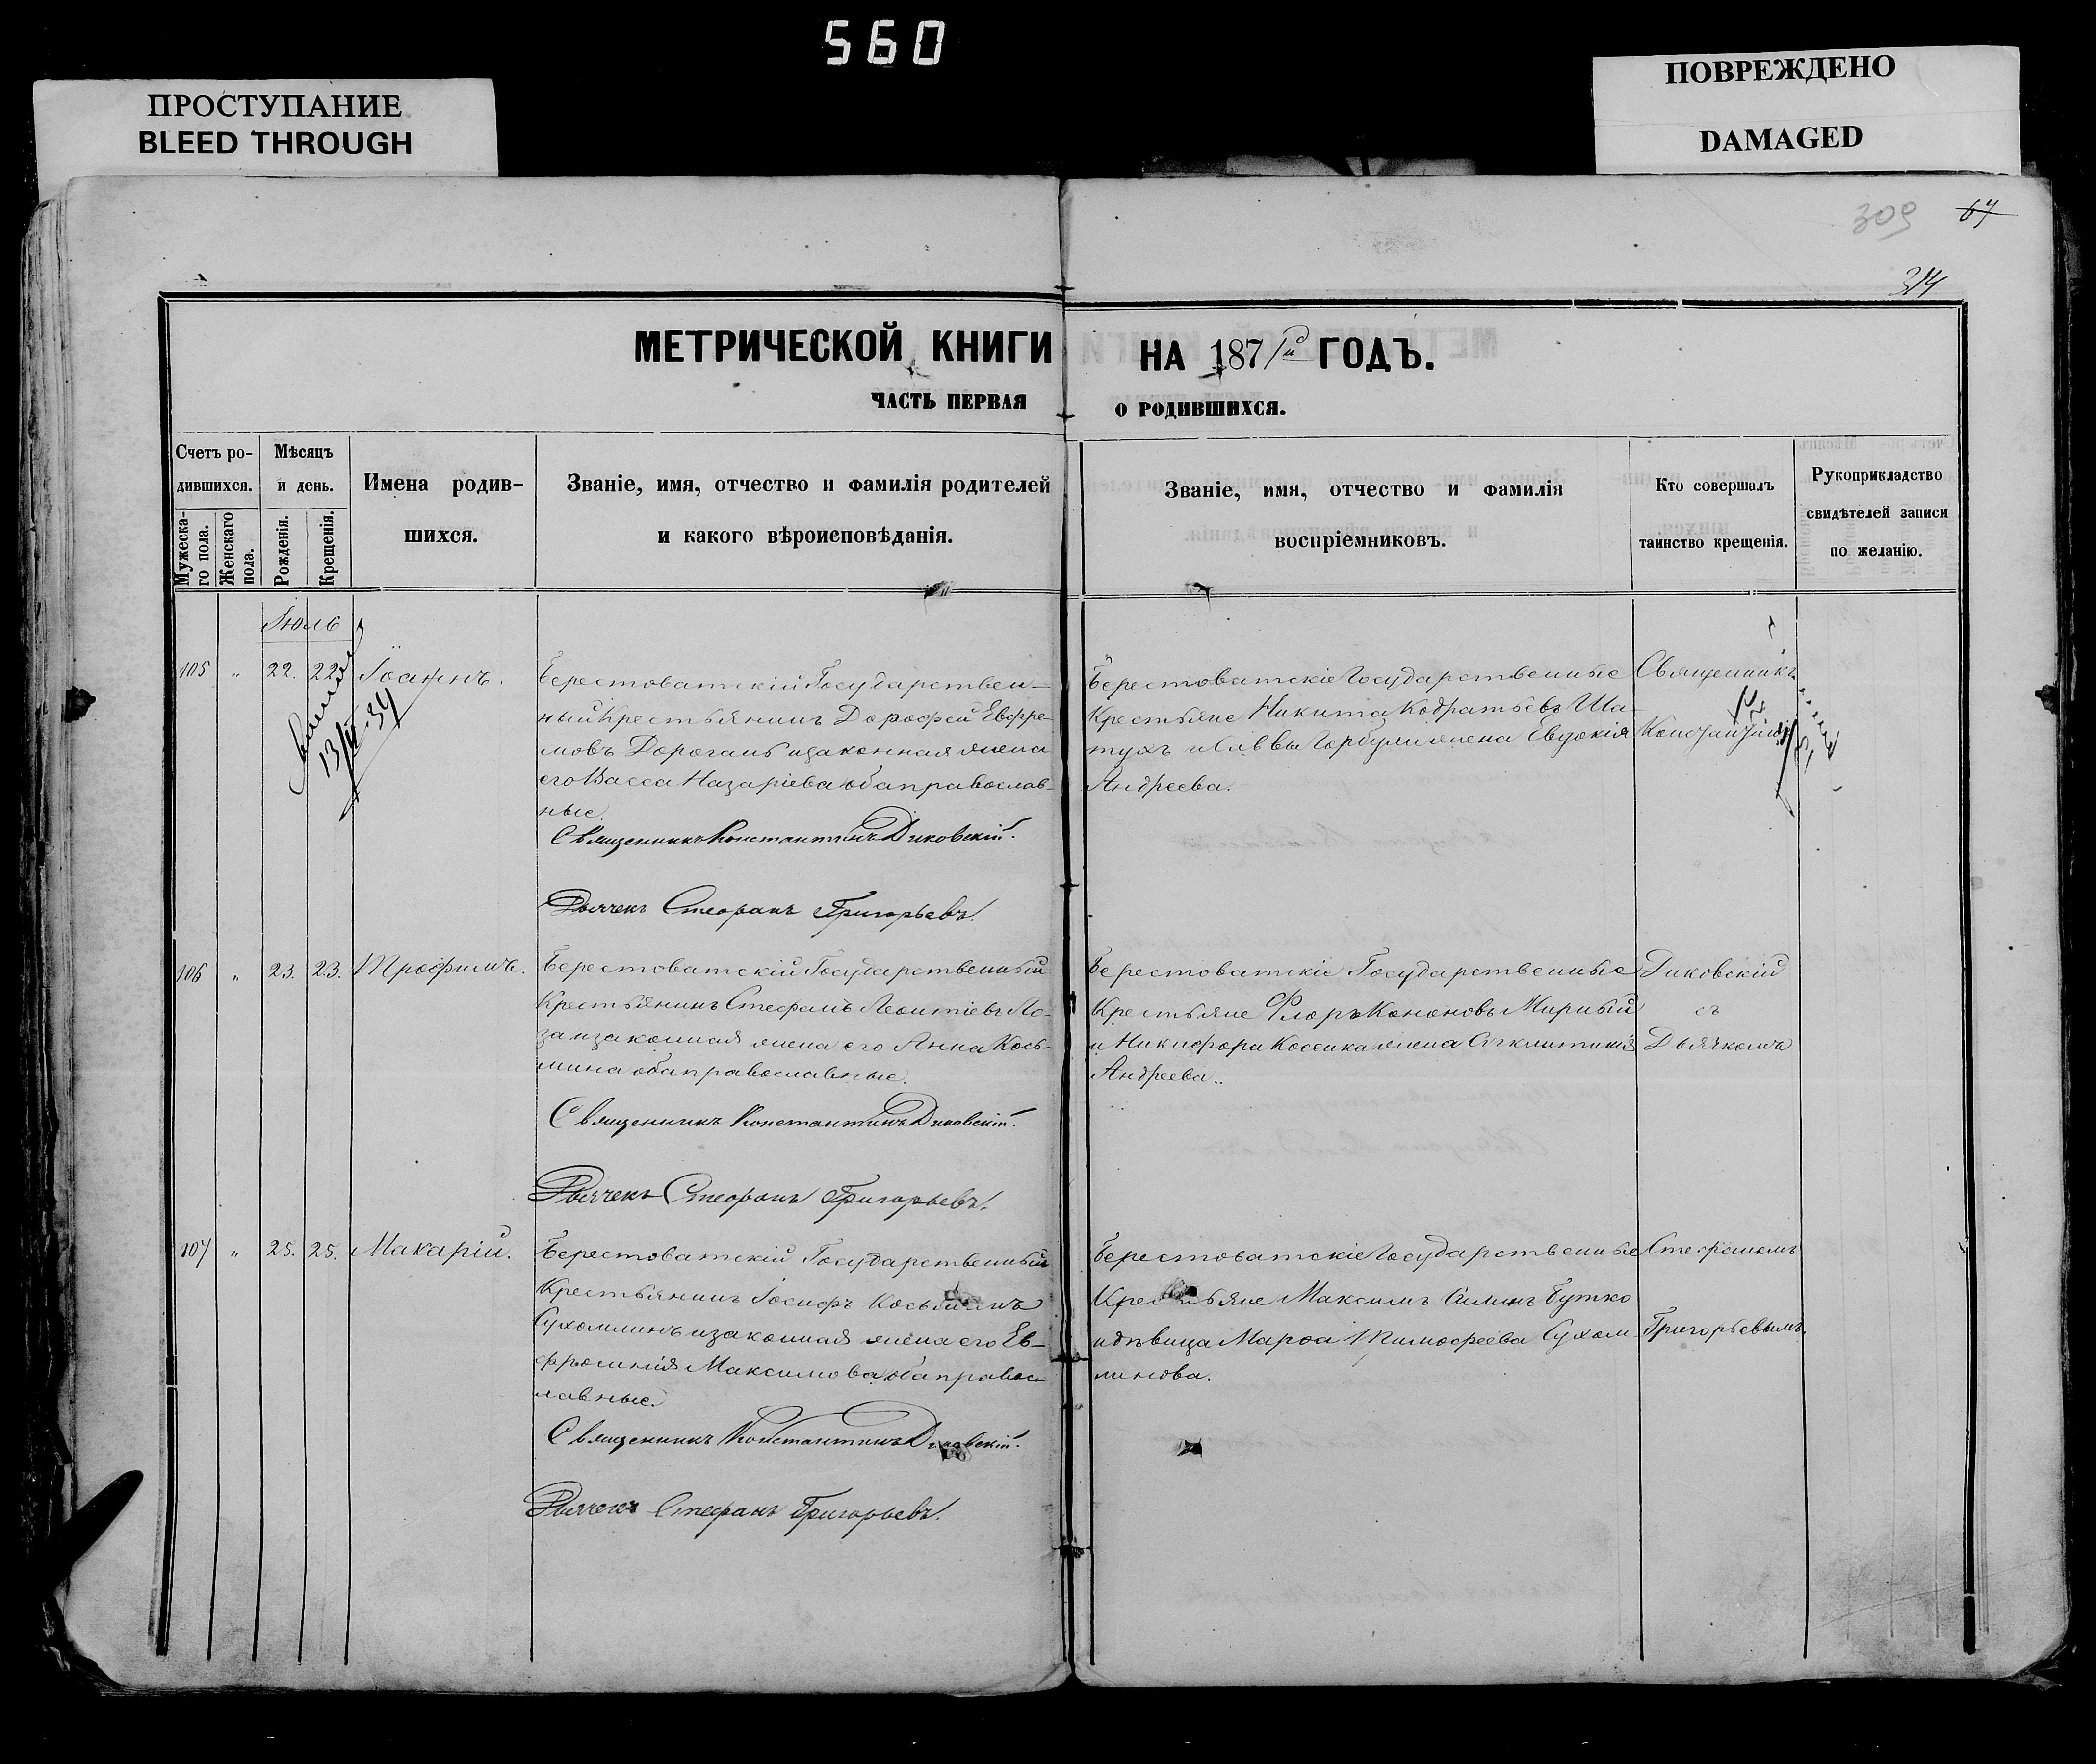 560
ПРОСТУПАНИЕ
BLEED THROUGH
ПОВРЕЖДЕНО
DAMAGED
309 67
314
МЕТРИЧЕСКОЙ КНИГИ НА 1871й ГОДЪ.
ЧАСТЬ ПЕРВАЯ О РОДИВШИХСЯ.
Счетъ ро-
дившихся.
Мужеска-
го пола.
Женскаго
пола.
Мѣсяцъ
и день.
Рожденія.
Крещенія.
Имена родив-
шихся.
Званіе, имя, отчество и фамилія родителей
и какого вѣроисповѣданія.
Званіе, имя, отчество и фамилія
воспріемниковъ.
Кто совершалъ
таинство крещенія.
Рукоприкладство
свидѣтелей записи
по желанію.
Іюль
105 " 22. 22. Іоаннъ.
Берестоватскій Государствен-
ный Крестьянинъ Дорофей Евфре-
мовъ Дорогань и законная жена
его Васса Назаріева оба православ-
ные.
Священникъ Константинъ Диковскій.
Дьячекъ Стефанъ Григорьевъ.
Берестоватскіе Государственные
Крестьяне Никита Кодратьевъ Ша-
тухъ и Саввы Горбули жена Евдокія
Андреева.
Священникъ
106 " 23. 23. Трофимъ.
Берестоватскій Государственный
Крестьянинъ Стефанъ Леонтіевъ Ло-
за и законная жена его Анна Кось-
мина оба православные.
Священникъ Константинъ Диковскій.
Дьячекъ Стефанъ Григорьевъ.
Берестоватскіе Государственные
Крестьяне Флоръ Кононовъ Мирный
и Никифора Коссика жена
Андреева..
Диковскій
съ
Дьячкомъ
107 " 25. 25. Макарій.
Берестоватскій Государственный
Крестьянинъ Іосифъ Косьминъ
Сухомлинъ и законная жена его Ев-
фросинія Максимова оба правос-
лавные.
Священникъ Константинъ Диковскій.
Дьячекъ Стефанъ Григорьевъ.
Берестоватскіе Государственные
Крестьяне Максимъ Силинъ Бутко
и дѣвица Марѳа Тимофеева Сухом-
линова.
Стефаномъ
Григорьевымъ.